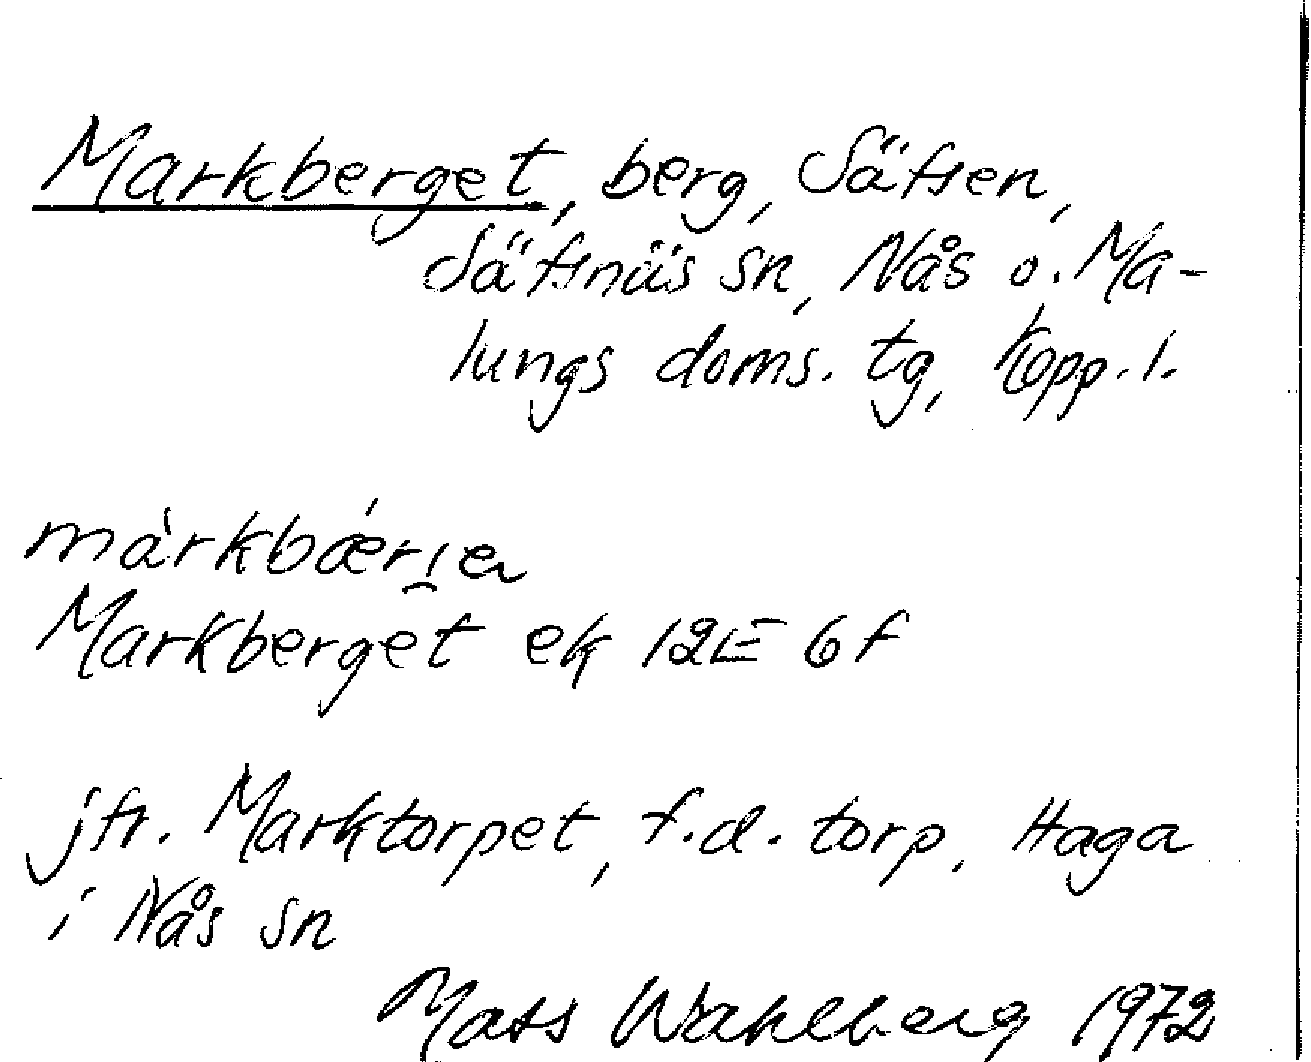 Markberget, berg, Säfsen,
Säfsnäs sn, Nås o. Ma-
lungs doms. tg, Kopp. l.
màrkbǽri̯en
Markberget ek 12E 6f
jfr. Marktorpet, f.d. torp, Haga
i Nås sn
Mats Wahlberg 1972